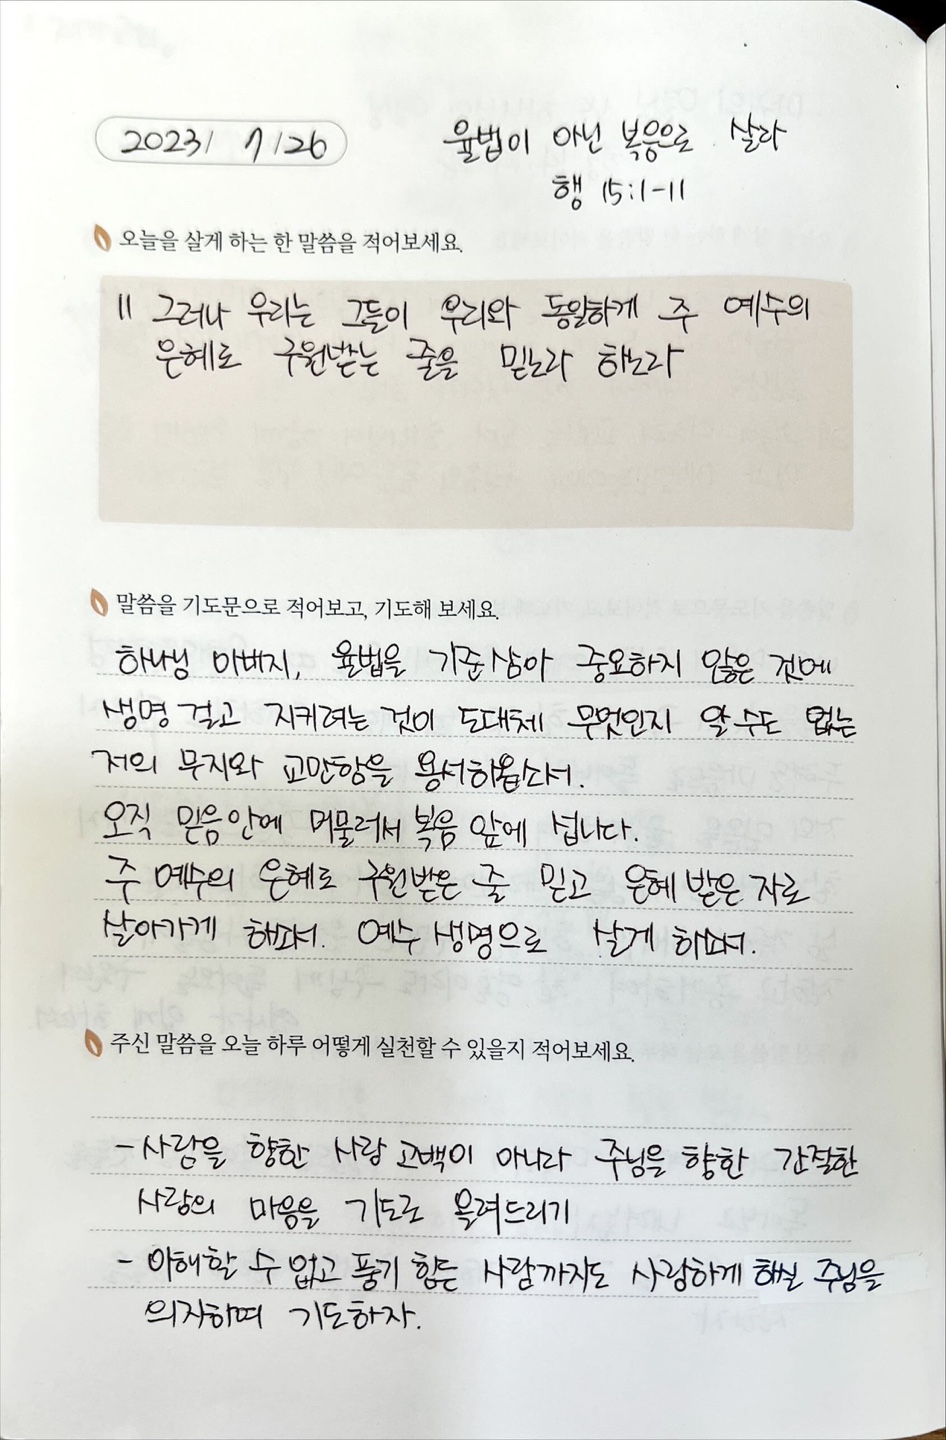 2023/ 7/26
율법이 아닌 복음으로 살라
행 15:1-11
오늘을 살게 하는 한 말씀을 적어보세요.
11 그러나 우리는 그들이 우리와 동일하게 주 예수의
은혜로 구원받는 줄을 믿노라 하노라
말씀을 기도문으로 적어보고, 기도해 보세요.
하나님 아버지, 율법을 기준삼아 중요하지 않은 것에
생명 걸고 지키려는 것이 도대체 무엇인지 알 수도 없는
저의 무지와 교만함을 용서하옵소서.
오직 믿음 안에 머물러서 복음 앞에 섭니다.
주 예수의 은혜로 구원받은 줄 믿고 은혜 받은 자로
살아가게 하소서. 예수 생명으로 살게 하소서.
주신 말씀을 오늘 하루 어떻게 실천할 수 있을지 적어보세요.
- 사람을 향한 사랑 고백이 아니라 주님을 향한 간절한
사랑의 마음을 기도로 올려드리기
- 이해할 수 없고 품기 힘든 사람까지도 사랑하게 하실 주님을
의지하며 기도하자.